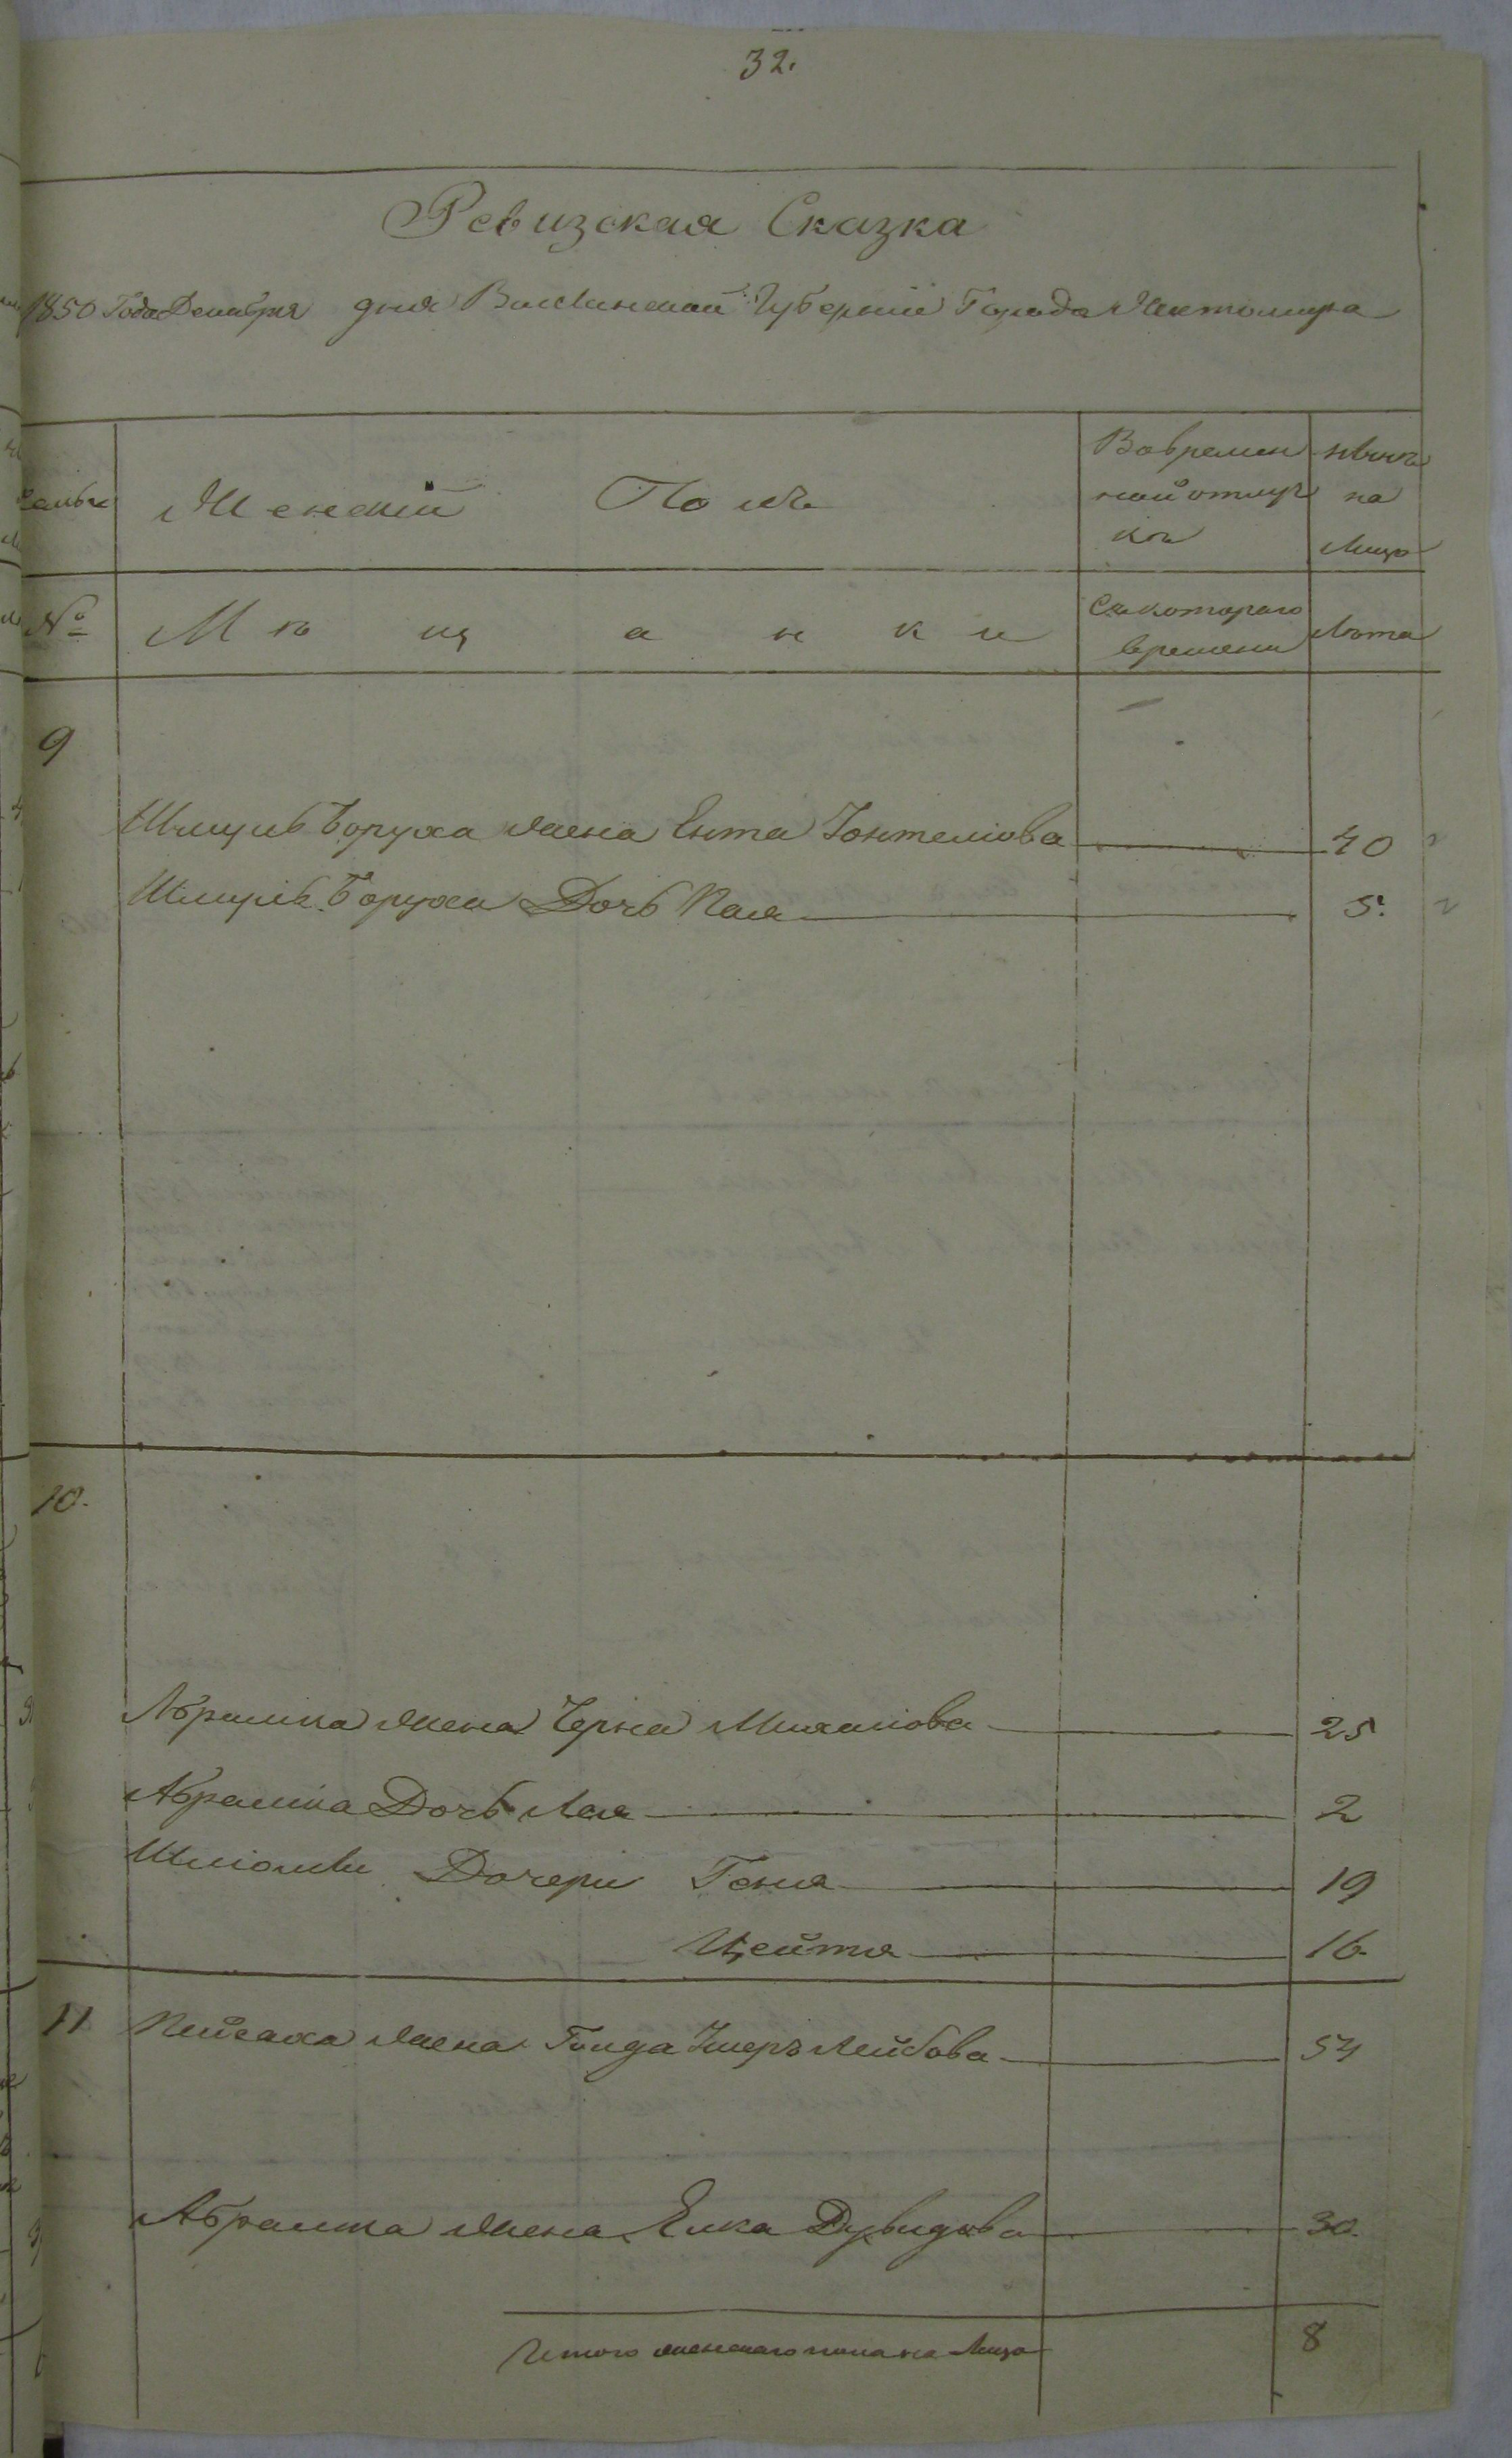 32.
Ревизская Сказка
1850 Года Декабря дня Волынской Губернии Города Житомира
Женский Полъ
Вовремен
ной отлуч
ки
нынѣ
на
Лицо
№
Мѣщанки
Съ котораго
времени
Лѣта
9
Шмуль Боруха жена Ента Іонтелiова 40
Шмуль Боруха Дочь Пая 5.
10.
Абрамка жена Черна 25
Абрамка Дочь Лая 2
Шліомы Дочери Геня 19
Цейтя 16.
11 Пейсаха жена Голда Лейбова 54
Абрамка жена Елка Дувидова 30.
Итого женскаго пола на Лицо 8